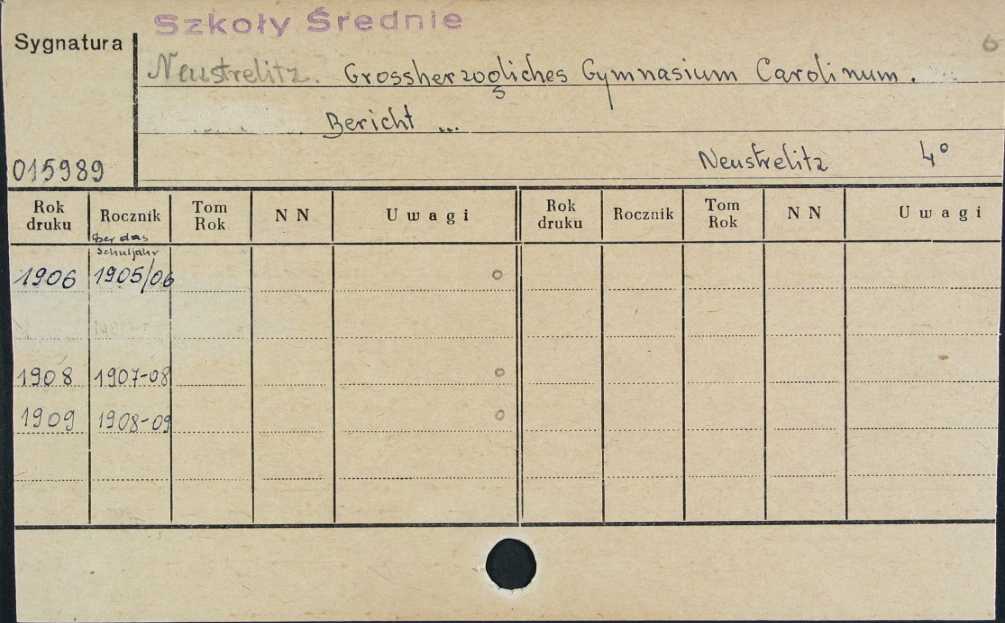 Szkoły Średnie
Sygnatura
Neustrelitz. Grossherzogliches Gymnasium Carolinum.
Bericht ...
015989 Neustrelitz 4°
Rok druku Rocznik Tom Rok N N Uwagi Rok druku Rocznik Tom Rok N N Uwagi
über das
Schuljahr
1906 1905/06 o
1908 1907-08 o
1909 1908-09 o